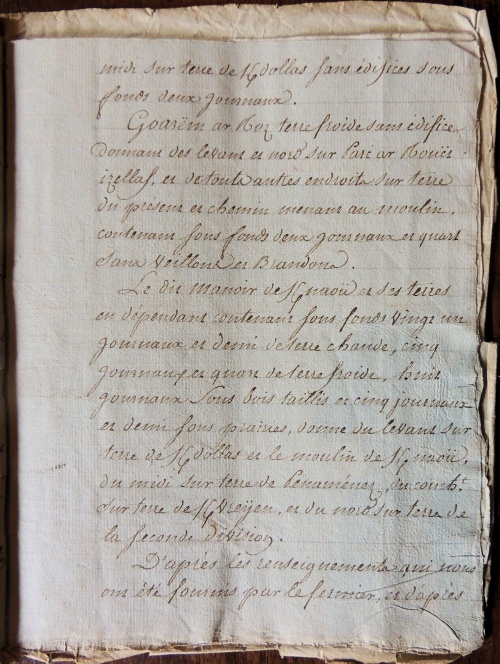 midi sur terre de K/dollas sans édifices sous
fonds deux journaux.
Goarëm ar Roz terre froide sans édifice
donnant des levant et nord sur Parc ar Rouër
izellaf, et de touts autres endroits sur terre
du present et chemin menant au moulin,
contenant sous fonds deux journaux et quart
sans veillons et Brandons.
Le dit manoir de K/naoü et ses terres
en dépendant contenant sous fonds vingt un
journaux et demi de terre chaude, cinq
journaux et quart de terre froide, huit
journaux sous bois taillis et cinq journaux
et demi sous prairies, donne du levant sur
terre de K/dollas et le moulin de K/naoü,
du midi sur terre de Penaménez, du couch.t
sur terre de K/vreyen, et du nord sur terre de
la seconde division.
D'après les renseignements qui nous
ont été fournis par le fermier, et d'après